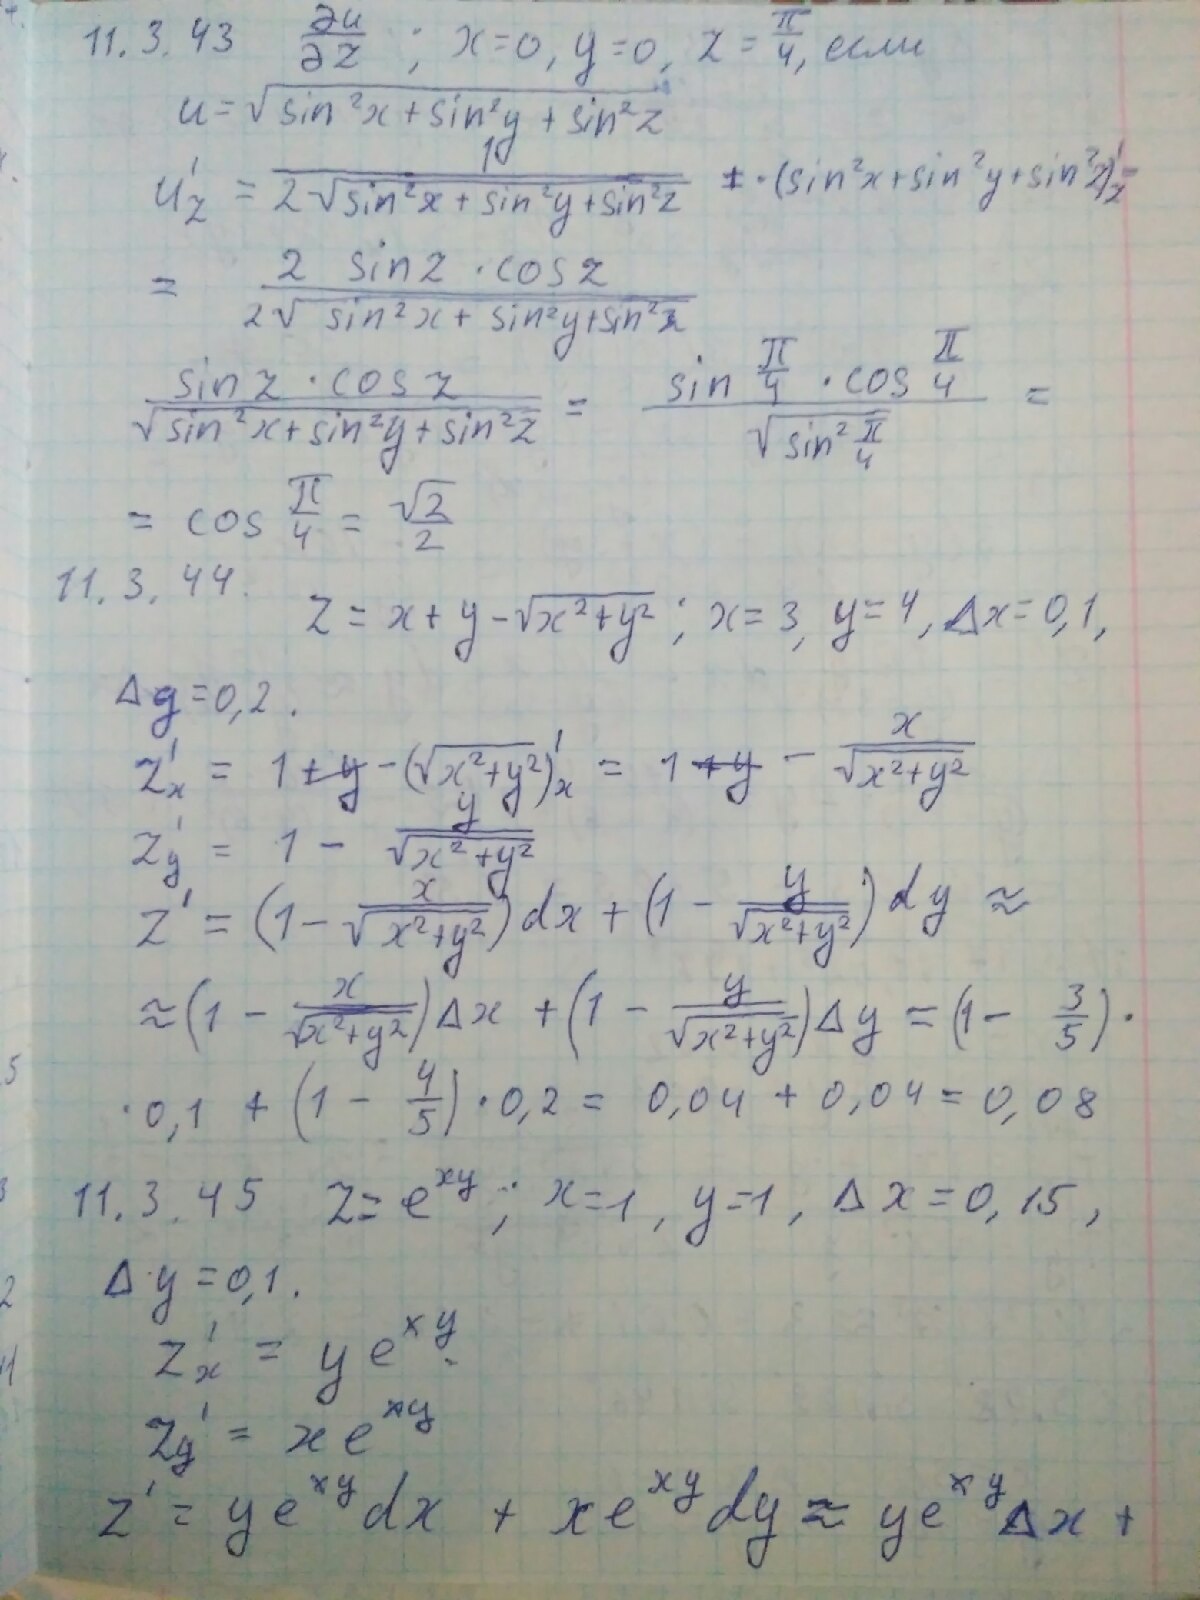 11.3.43 ∂u/∂z ; x=0, y=0, z=π/4, если
u=√(sin²x+sin²y+sin²z)
u'z = 1/(2√(sin²x+sin²y+sin²z)) · (sin²x+sin²y+sin²z)'z =
= (2 sinz·cosz)/(2√(sin²x+sin²y+sin²z))
(sinz·cosz)/√(sin²x+sin²y+sin²z) = (sin π/4 · cos π/4)/√(sin² π/4) =
= cos π/4 = √2/2
11.3.44.
z=x+y-√(x²+y²); x=3, y=4, Δx=0,1,
Δy=0,2.
z'x = 1+y-(√(x²+y²))'x = 1+y - x/√(x²+y²)
z'y = 1 - y/√(x²+y²)
z' = (1- x/√(x²+y²))dx+(1- y/√(x²+y²))dy ≈
≈(1- x/√(x²+y²))Δx+(1- y/√(x²+y²))Δy=(1- 3/5)·
·0,1+(1- 4/5)·0,2= 0,04+0,04=0,08
11.3.45 z=e^xy; x=1, y=1, Δx=0,15,
Δy=0,1.
z'x = ye^xy.
z'y = xe^xy
z' = ye^xy dx + xe^xy dy ≈ ye^xy Δx +